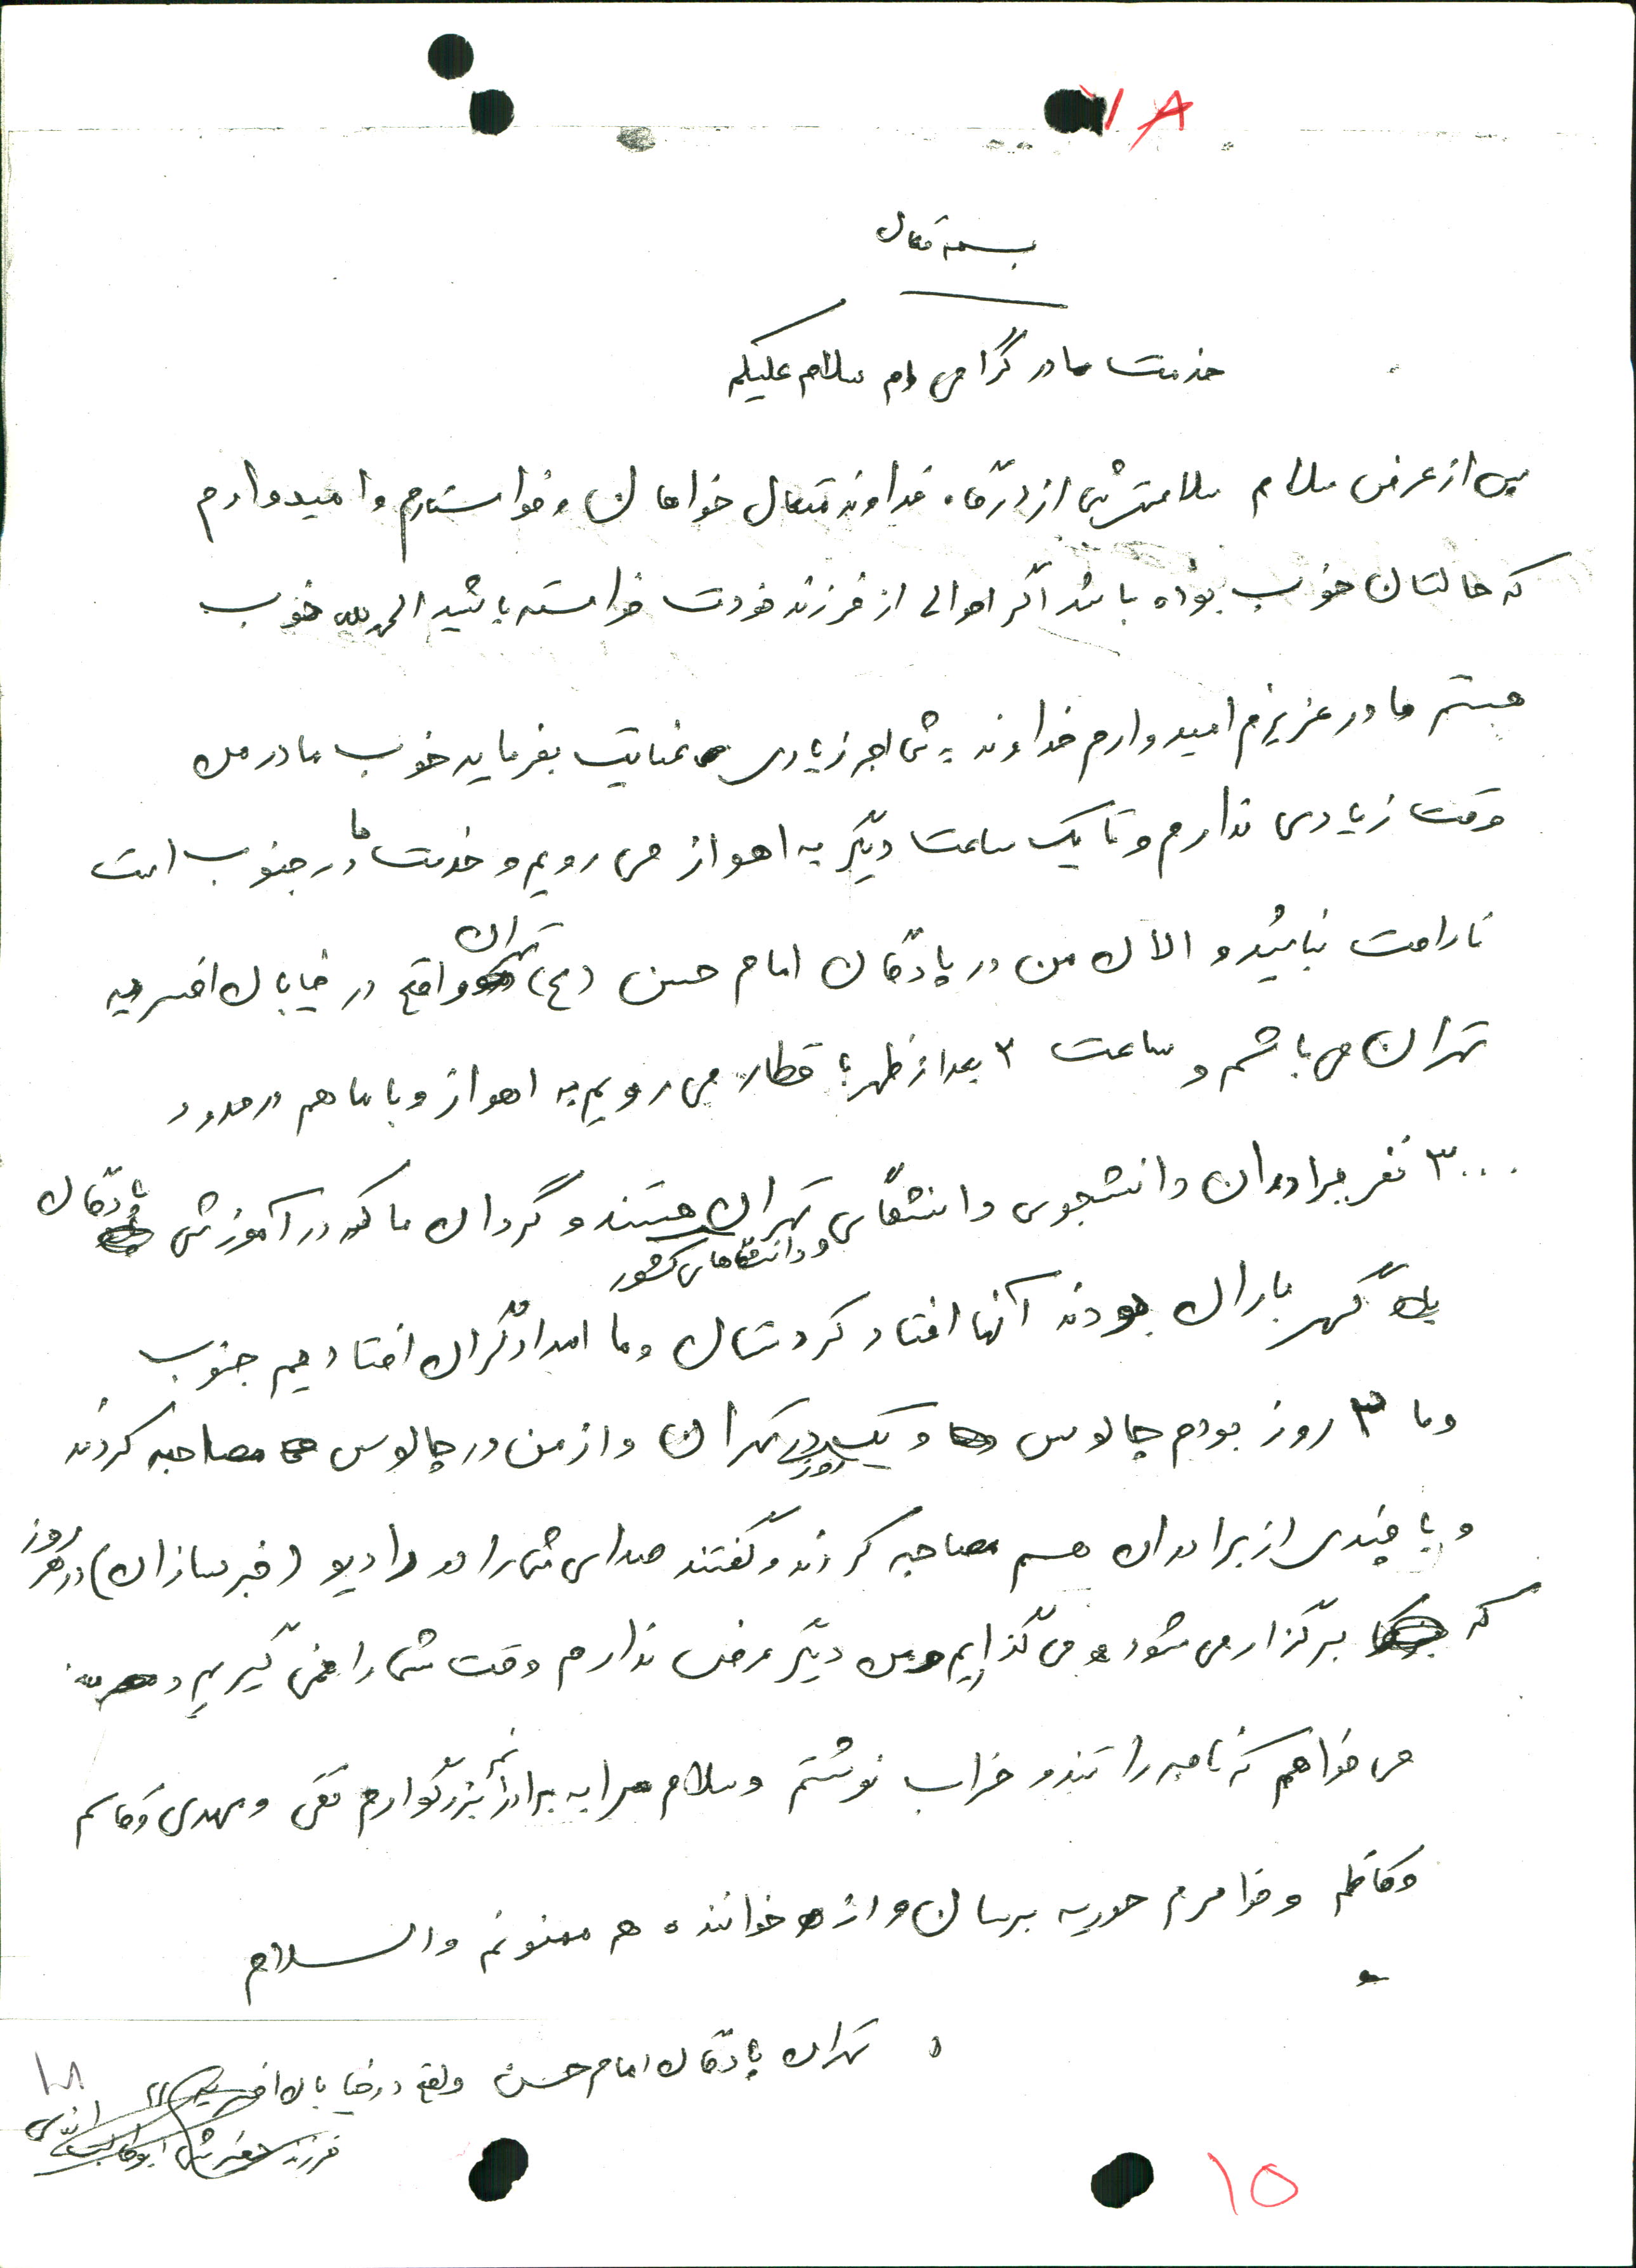 ۷۸
بسمه تعالی
خدمت مادر گرامی ام سلام علیکم
پس از عرض سلام سلامتی شما از درگاه خداوند متعال خواهان و خواستارم و امیدوارم
که حالتان خوب بوده باشد اگر احوالی از فرزند خودت خواسته باشید الحمدلله خوب
هستم مادر عزیزم امیدوارم خداوند به شما اجر زیادی عنایت بفرماید خوب مادر من
وقت زیادی ندارم و تا یک ساعت دیگر به اهواز می رویم و خدمت ما در جنوب است
ناراحت نباشید و الان من در پادگان امام حسن (ع) تهران واقع در خیابان افسریه
تهران می باشم و ساعت ۲ بعد از ظهر با قطار می رویم به اهواز و با ما هم در حدود
۳۰۰۰ نفر برادران دانشجوی دانشگای تهران و دانشگاهای کشور هستند و گردان ما که در آموزشی پادگان
گهر باران بودند آنها افتاد کردستان و ما امدادگران افتادیم جنوب
و ما ۳ روز بودم چالوس و یک روز در تهران و از من در چالوس مصاحبه کردند
و با چندی از برادران هم مصاحبه کردند و گفتند صدای شما را در رادیو (خبرسازان) در هر روز
که برگزار می شود می گذاریم دیگر عرض ندارم وقت شما را نمی گیریم و
می خواهم که نامه را تند و خراب نوشتم و سلام مرا به برادران بزرگوارم تقی و مهدی و قاسم
و کاظم و خواهرم حوریه برسان و از خواننده هم ممنونم والسلام
تهران پادگان امام حسن واقع در خیابان افسریه
فرزند شما ابوطالب
۱۸
۱۵